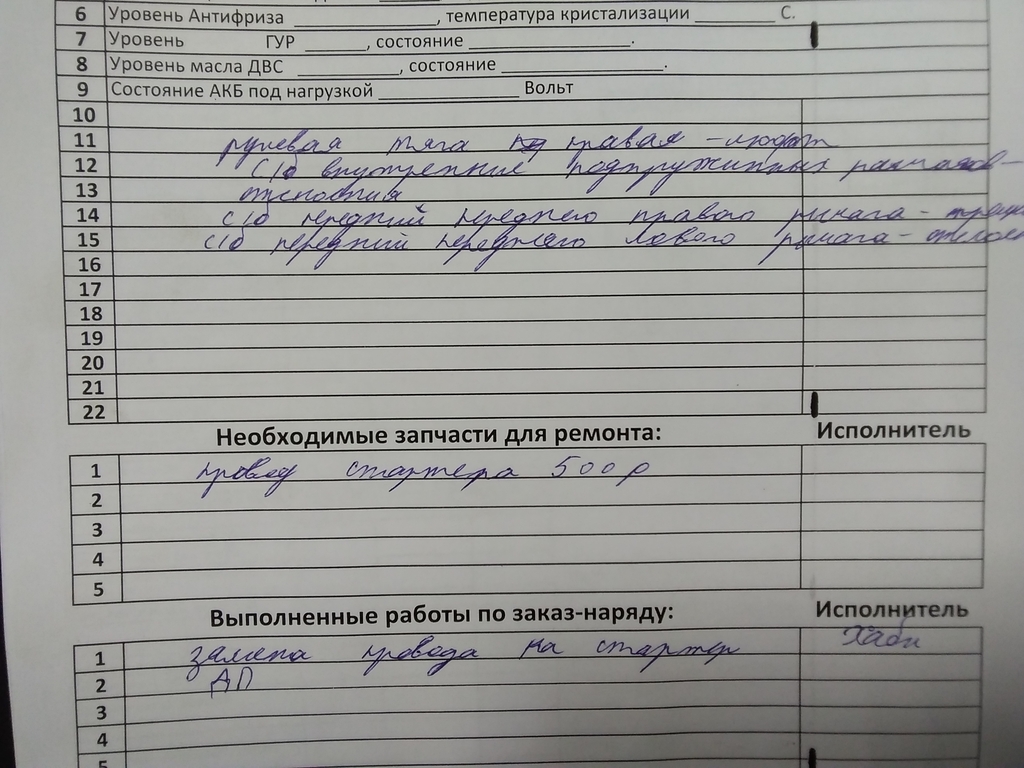 6 Уровень Антифриза ____________, температура кристализации _______ С.
7 Уровень ГУР _____, состояние ______________.
8 Уровень масла ДВС _________, состояние ______________.
9 Состояние АКБ под нагрузкой ____________ Вольт
10
11 рулевая тяга правая - люфт
12 с/б внутренние подпружинных рычагов -
13 отслоения
14 с/б передний переднего правого рычага -
15 с/б передний переднего левого рычага -
16
17
18
19
20
21
22
Необходимые запчасти для ремонта: Исполнитель
1 провод стартера 500р
2
3
4
5
Выполненные работы по заказ-наряду: Исполнитель
1 замена провода на стартер
2 ДП
3
4
5